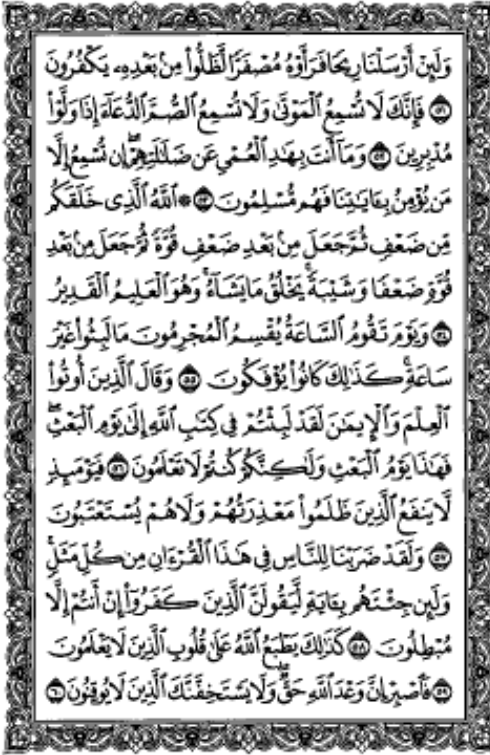 وَلَئِنْ أَرْسَلْنَا رِيحًا فَرَأَوْهُ مُصْفَرًّا لَّظَلُّوا۟ مِنۢ بَعْدِهِۦ يَكْفُرُونَ
۝٥١ فَإِنَّكَ لَا تُسْمِعُ ٱلْمَوْتَىٰ وَلَا تُسْمِعُ ٱلصُّمَّ ٱلدُّعَآءَ إِذَا وَلَّوْا۟
مُدْبِرِينَ ۝٥٢ وَمَآ أَنتَ بِهَـٰدِ ٱلْعُمْىِ عَن ضَلَـٰلَتِهِمْ ۖ إِن تُسْمِعُ إِلَّا
مَن يُؤْمِنُ بِـَٔايَـٰتِنَا فَهُم مُّسْلِمُونَ ۝٥٣ ۞ ٱللَّهُ ٱلَّذِى خَلَقَكُم
مِّن ضَعْفٍ ثُمَّ جَعَلَ مِنۢ بَعْدِ ضَعْفٍ قُوَّةً ثُمَّ جَعَلَ مِنۢ بَعْدِ
قُوَّةٍ ضَعْفًا وَشَيْبَةً ۚ يَخْلُقُ مَا يَشَآءُ ۖ وَهُوَ ٱلْعَلِيمُ ٱلْقَدِيرُ
۝٥٤ وَيَوْمَ تَقُومُ ٱلسَّاعَةُ يُقْسِمُ ٱلْمُجْرِمُونَ مَا لَبِثُوا۟ غَيْرَ
سَاعَةٍ ۚ كَذَٰلِكَ كَانُوا۟ يُؤْفَكُونَ ۝٥٥ وَقَالَ ٱلَّذِينَ أُوتُوا۟
ٱلْعِلْمَ وَٱلْإِيمَـٰنَ لَقَدْ لَبِثْتُمْ فِى كِتَـٰبِ ٱللَّهِ إِلَىٰ يَوْمِ ٱلْبَعْثِ ۖ
فَهَـٰذَا يَوْمُ ٱلْبَعْثِ وَلَـٰكِنَّكُمْ كُنتُمْ لَا تَعْلَمُونَ ۝٥٦ فَيَوْمَئِذٍ
لَّا يَنفَعُ ٱلَّذِينَ ظَلَمُوا۟ مَعْذِرَتُهُمْ وَلَا هُمْ يُسْتَعْتَبُونَ
۝٥٧ وَلَقَدْ ضَرَبْنَا لِلنَّاسِ فِى هَـٰذَا ٱلْقُرْءَانِ مِن كُلِّ مَثَلٍ ۚ
وَلَئِن جِئْتَهُم بِـَٔايَةٍ لَّيَقُولَنَّ ٱلَّذِينَ كَفَرُوٓا۟ إِنْ أَنتُمْ إِلَّا
مُبْطِلُونَ ۝٥٨ كَذَٰلِكَ يَطْبَعُ ٱللَّهُ عَلَىٰ قُلُوبِ ٱلَّذِينَ لَا يَعْلَمُونَ
۝٥٩ فَٱصْبِرْ إِنَّ وَعْدَ ٱللَّهِ حَقٌّ ۖ وَلَا يَسْتَخِفَّنَّكَ ٱلَّذِينَ لَا يُوقِنُونَ ۝٦٠